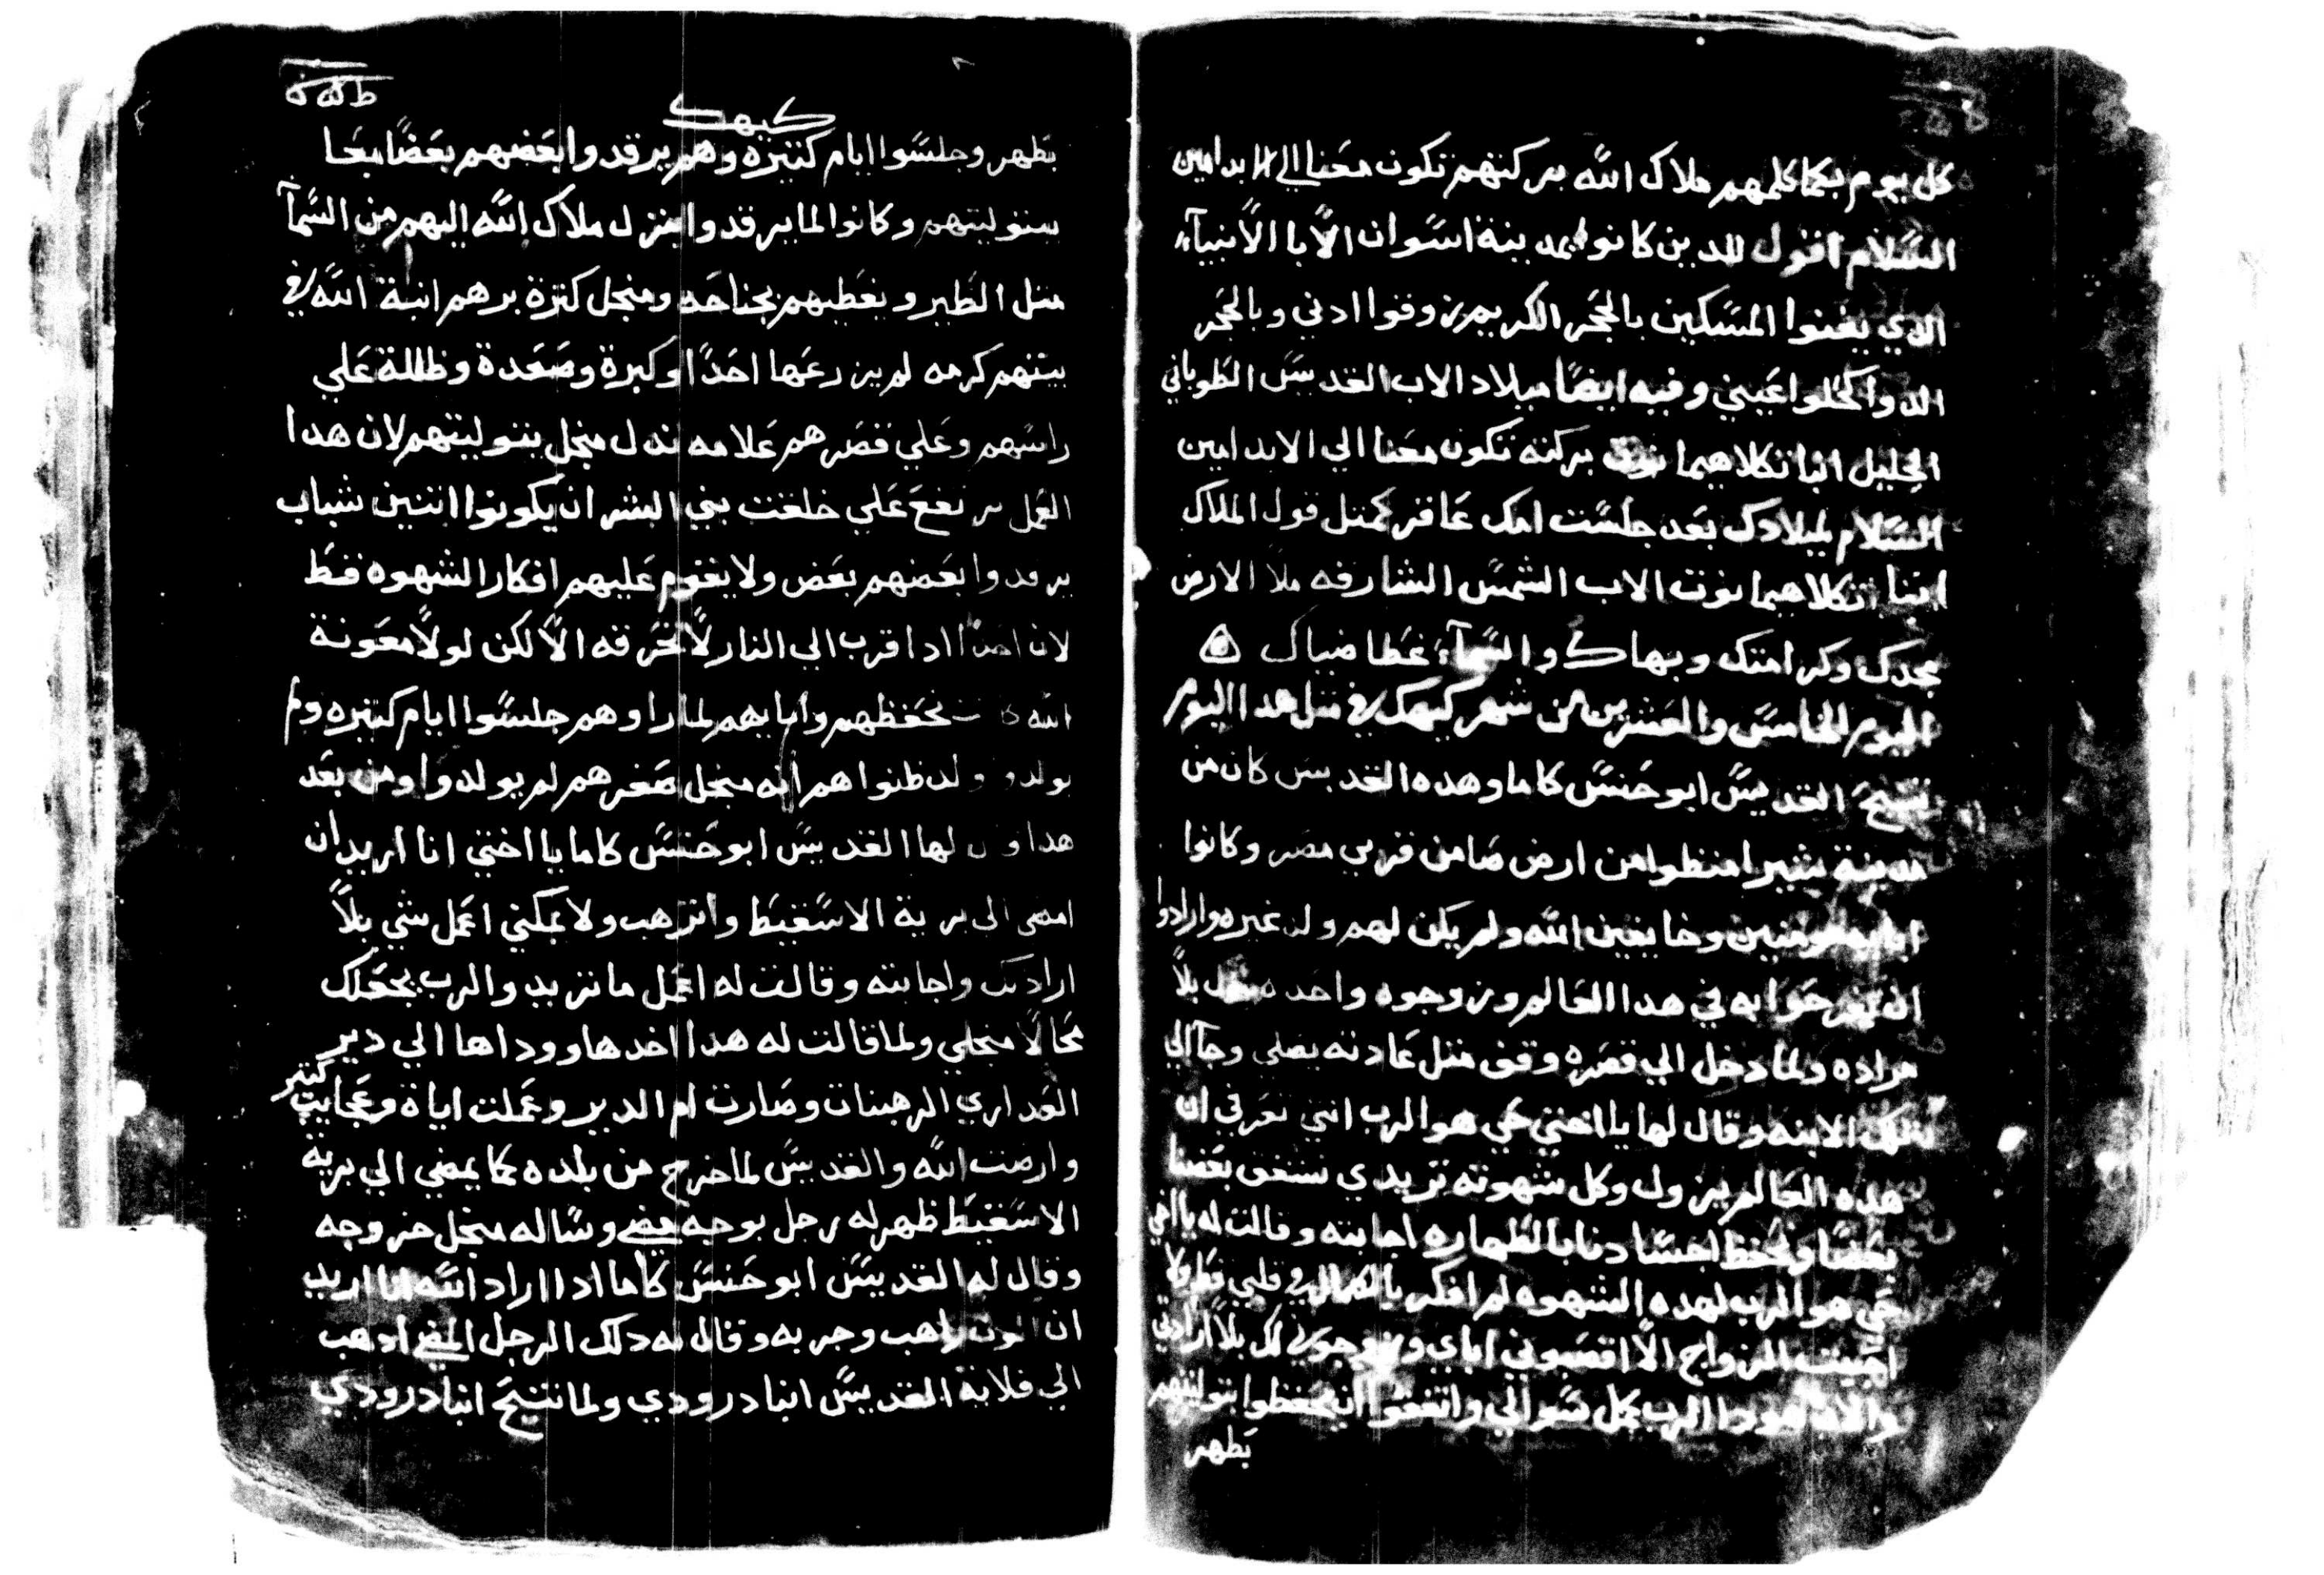 كل يوم بكما كلمهم ملاك الله بركتهم تكون معنا الي الابد امين
السلام اقول للدين كانوا بمدينة اسوان الابا الانبيآء
الدي يغنوا المسكين بالحجر الكريم زوقوا ادني وبالحجر
الدوا كحلوا عيني وفيه ايضا ميلاد الاب القديس الطوباني
الجليل انبا تكلاهيمانوت بركته تكون معنا الي الابد امين
السلام لميلادك بعد جلست امك عاقر كمتل قول الملاك
ابنا تكلاهيمانوت الاب الشمس الشارقه ملا الارض
مجدك وكرامتك وبهاك والسمآء غطا ضياك
اليوم الخامس والعشرين من شهر كيهك في متل هدا اليوم
تنيح القديس ابو حنس كاما وهده القديس كان من
مدينة شبرا منظوا من ارض صا من قري مصر وكانوا
ابايه مومنين وخايفين الله ولم يكن لهم ولد غيره وارادوا
ان يفرحوا به في هدا العالم وزوجوه واحده بلا
مراده ولما دخل الي قصره وقف متل عادته يصلي وجآ الي
تلك الابنه وقال لها يا اختي حي هو الرب انتي تعرفي ان
هده العالم يزول وكل شهوته تريدي نتفق بعضنا
بعضا ونحفظ اجسادنا بالطهاره اجابته وقالت له يا اخي
حي هو الرب لهده الشهوه لم افكر بالكمال في قلبي قط ولا
احبيت الزواج الا اقصبوني اباي وزوجوني لك بلا ارادتي
والان هودا الرب كمل سوالي واتفقوا ان يحفظوا بتوليتهم
بطهر
كيهك
بطهر وجلسوا ايام كتيره وهم يرقدوا بعضهم بعضا معا
ببتوليتهم وكانوا لما يرقدوا ينزل ملاك الله اليهم من السمآ
متل الطير ويغطيهم بجناحه ومنجل كترة برهم انبة الله في
بيتهم كرمه لم يزرعها احدا وكبرة وصعدة وظللة علي
راسهم وعلي قصرهم علامه تدل منجل بتوليتهم لان هدا
العمل يرتفع علي خلقت بني البشر ان يكونوا اتنين شباب
يرقدوا بعضهم بعض ولا يقوم عليهم افكار الشهوه قط
لان احدا ادا قرب الي النار لا تحرقه الا لكن لولا معونة
الله كانت تحفظهم وابايهم لما راوهم جلسوا ايام كتيره ولم
يولدوا ولد ظنوا هم انه منجل صغرهم لم يولدوا ومن بعد
هدا وقال لها القديس ابو حنس كاما يا اختي انا اريد ان
امضي الي برية الاسقيط واترهب ولا يمكني اعمل شي بلا
ارادتك واجابته وقالت له اعمل ما تريد والرب يجعلك
محالا منجلي ولما قالت له هدا اخدها ووداها الي دير
العداري الرهبنات وصارت ام الدير وعملت اياة وعجايب كتير
وارضت الله والقديس لما خرج من بلده كما يمضي الي برية
الاسقيط ظهر له رجل بوجه مضي وساله منجل خروجه
وقال له القديس ابو حنس كاما ادا اراد الله انا اريد
ان اكون راهب وجربه وقال له دلك الرجل المضي ادهب
الي قلاية القديس انبا درودي ولما تنيح انبا درودي